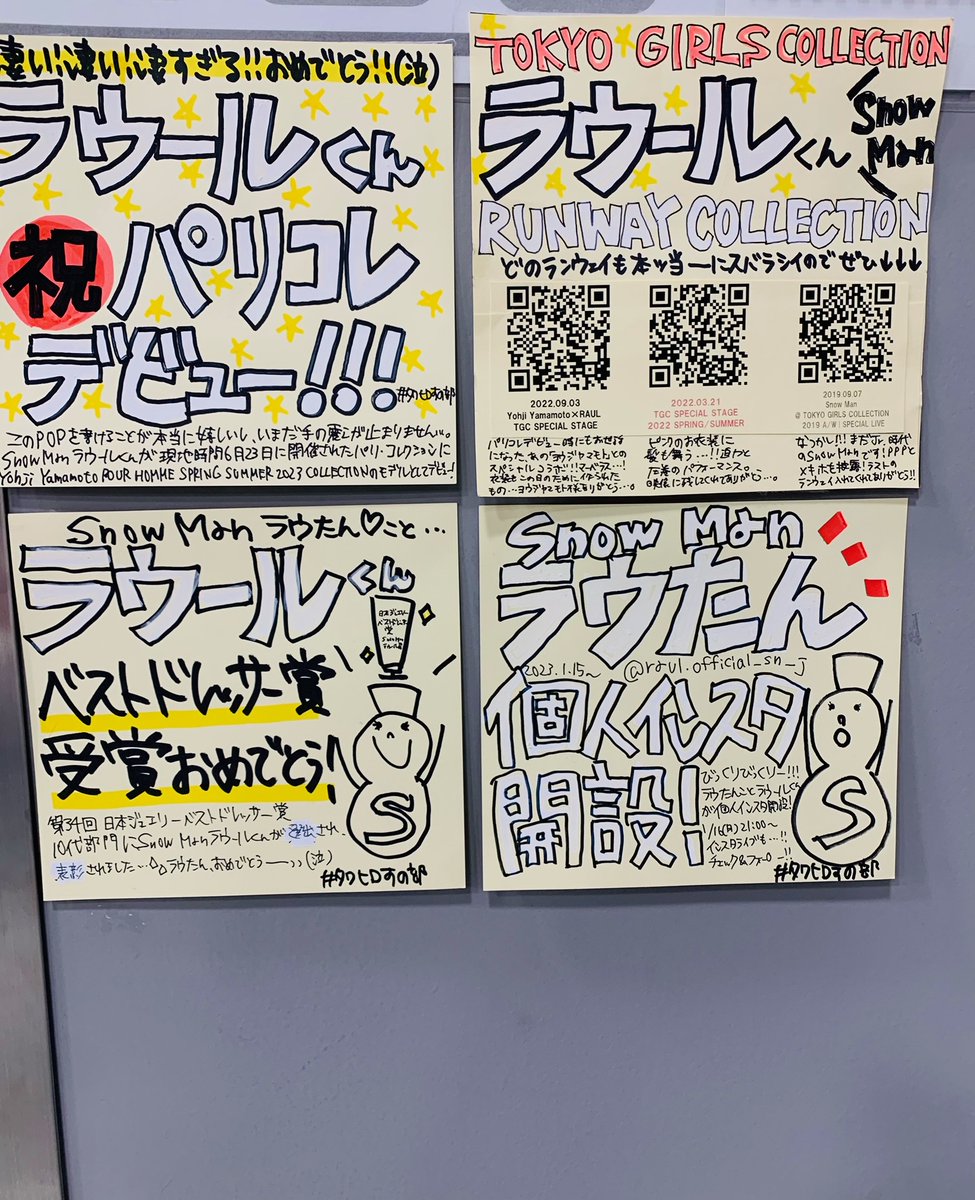 凄い!凄い!凄すぎる!!おめでとう!!(泣)
ラウールくん
祝 パリコレ
デビュー!!!
#タワヒロすの部
このPOPを書けることが本当に嬉しいし、いまだ手の震えが止まりません…。
Snow Man ラウールくんが現地時間6月23日に開催されたパリ・コレクションに
Yohji Yamamoto POUR HOMME SPRING SUMMER 2023 COLLECTIONのモデルとしてデビュー!
TOKYO GIRLS COLLECTION
ラウールくん
Snow Man
RUNWAY COLLECTION
どのランウェイも本ッ当ーにスバラシイのでぜひ↓↓↓
2022.09.03
Yohji Yamamoto×RAUL
TGC SPECIAL STAGE
2022.03.21
TGC SPECIAL STAGE
2022 SPRING/SUMMER
2019.09.07
Snow Man
@ TOKYO GIRLS COLLECTION
2019 A/W | SPECIAL LIVE
パリコレデビュー時にもお世話
になった、あのヨウジヤマモトとの
スペシャルコラボ!!マーベラス…!
衣装もこの日のために作られた
もの…ヨウジヤマモト様ありがとう…。
ピンクのお衣装に
髪も舞う…!!
圧巻のパフォーマンス。
映像に残してくれてありがとう…。
なつかし!!!まだJr.時代
のSnow Manです!PPPと
メキホを披露!ラストの
ランウェイ入れてくれてありがとう!!
Snow Man ラウたん♡こと…
ラウールくん
日本ジュエリー
ベストドレッサー
賞
ベストドレッサー賞
受賞おめでとう!
S
第34回 日本ジュエリーベストドレッサー賞
10代部門にSnow Manラウールくんが選出され、
表彰されました…。ラウたん、おめでとうーーっ(泣)
#タワヒロすの部
Snow Man
ラウたん
2023.1.15〜 @raul.official_sn_j
個人インスタ
開設!
S
びっくりびっくりー!!!
ラウたんことラウールくん
が個人インスタ開設!
1/16(月)21:00〜
インスタライブも…!!
チェック&フォローー!!
#タワヒロすの部